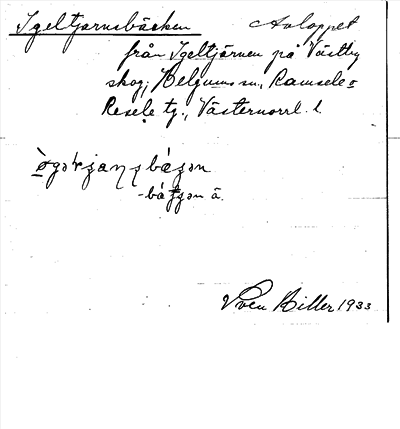 Igeltjärnsbäcken Avloppet
från Igeltjärnen på Västby
skog, Helgums sn, Ramsele o
Resele tg., Västernorrl. l.
-båtjən ä.
Sven Biller 1933